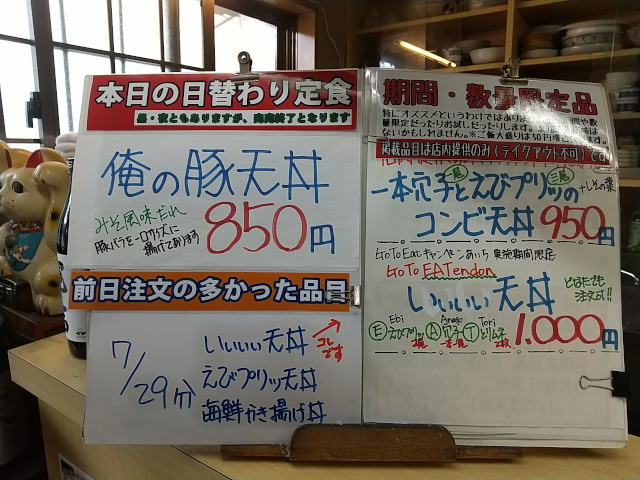 本日の日替わり定食
昼・夜ともありますが、完売終了となります
俺の豚天丼
みそ風味だれ
豚バラを一口サイズに
揚げております
850円
前日注文の多かった品目
7/29分
いいいい天丼
えびプリッツ天丼
海鮮かき揚げ丼
コレ
です
期間・数量限定品
特にオススメというわけではありま
量限定だったりお試しだったりします。
ないかもしれません。※ご飯大盛りは50円増
掲載品目は店内提供のみ(テイクアウト不可)です
一本穴子とえびプリッツの
二尾
+しその葉
コンビ天丼 950円
GoToEatキャンペーンあいち 実施期間限定
GoTo EATendon
いいいい天丼
どなたでも
注文可!!
Ⓔ Ebi えびプリッツ 2尾 Ⓐ Anago 穴子 一本 Ⓣ Tori とり 2枚
1.000円